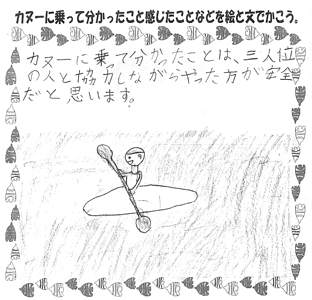 カヌーに乗って分かったこと感じたことなどを絵と文でかこう。
カヌーに乗って分かったことは、三人位
の人と協力しながらやった方が安全
だと思います。